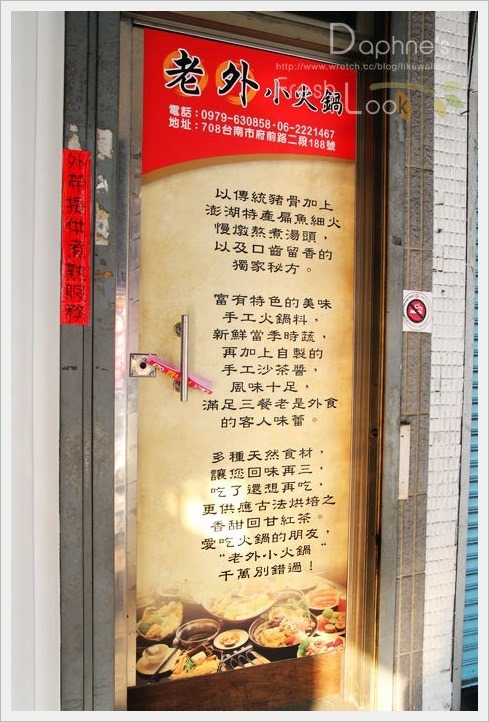 Daphne's
http://www.wretch.cc/blog/likewalker
Fresh
Look
老外小火鍋
電話：0979-630858·06-2221467
地址：708台南市府前路二段188號
外帶提供煮熟服務
以傳統豬骨加上
澎湖特產扁魚細火
慢燉熬煮湯頭，
以及口齒留香的
獨家秘方。
富有特色的美味
手工火鍋料，
新鮮當季時蔬，
再加上自製的
手工沙茶醬，
風味十足，
滿足三餐老是外食
的客人味蕾。
多種天然食材，
讓您回味再三，
吃了還想再吃，
更供應古法烘培之
香甜回甘紅茶。
愛吃火鍋的朋友，
“老外小火鍋“
千萬別錯過！